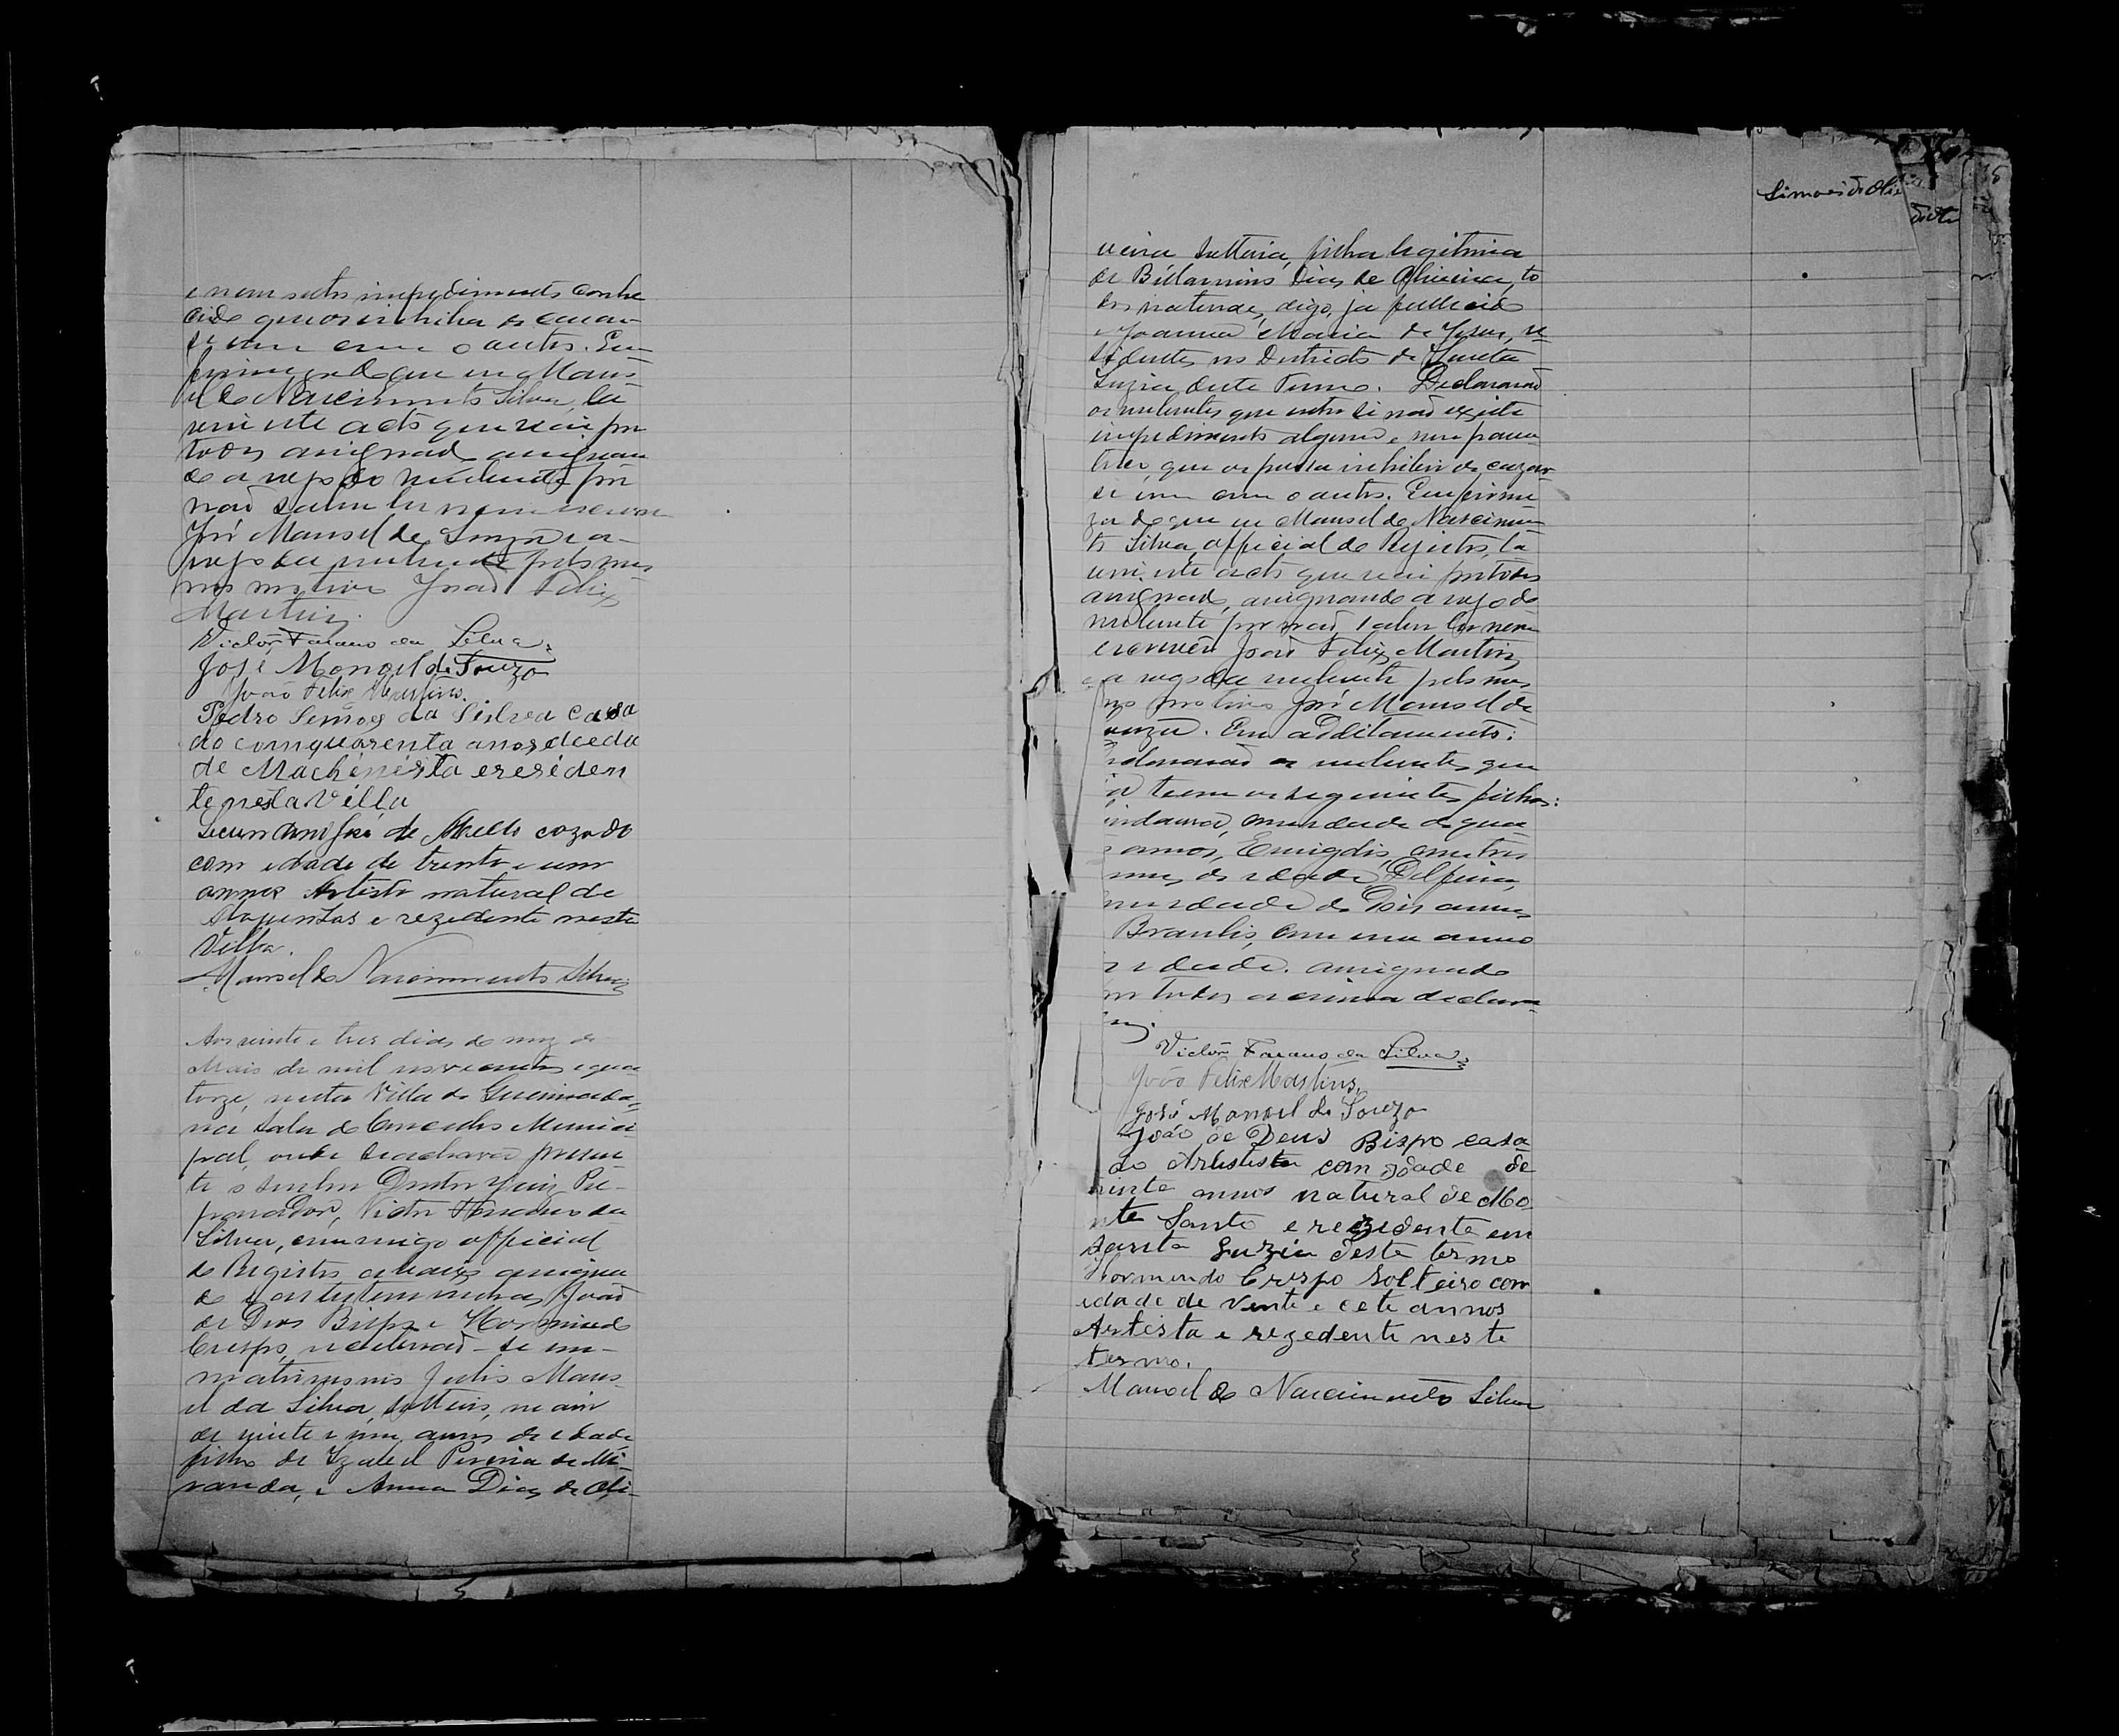 e nem outro impedimento conhe
cido que os inhiba de casar
se um com o outro. Em
firmeza do que eu Mano
el do Nascimento Silva, la
vrei este acto que vai por
todos assignado assignan
do a rogo do nubente por
não saber ler nem escrever
José Manoel de Souza e a
rogo da nubente pelo mes
mo motivo João Felix
Martins.
Victor Fanano da Silva.
José Manoel de Souza
João Felix Martins.
Pedro Semoes da Seilvea casa
do comquarenta anos deeda
de Machinista ereseden
te nesta Vella
José de Mello cazado
com idade de trenta e um
annos Artista natural de
e rezedente nesta
Villa.
Manoel do Nascimento Silva
Aos vinte e tres dias do mez de
Maio de mil novecentos e qua
torze, nesta Villa de Queimadas
na sala do Conselho Munici
pal, onde se achava presen
te o senhor Doutor Juiz Pre-
parador, Victor da
Silva, commigo official
do Registro abaixo assigna
do e as testemunhas João
de Deus Bispo e Hormindo
Crespo, receberão-se em
matrimonio Julio Mano
el da Silva, solteiro, maior
de vinte e um annos de edade
filho de Izabel Pereira de Mi-
randa, e Anna Dias de Oli-
Simões de
veira solteira, filha legitima
de Bellarmino Dias de Oliveira, to
dos naturaes, digo, já fallecido
e Joanna Maria de Jesus, re-
sidentes no Districto de Santa
Luzia deste Termo. Declararão
os nubentes que entre si não existe
impedimento algum e nem paren
tesco que os possa inhibir de cazar
se um com o outro. Em firme
za do que eu Manoel do Nascimen
to Silva, official do Registro, la
vrei este acto que vai por todos
assignado, assignando a rogo do
nubente por não saber ler nem
escrever João Felix Martins
e a rogo da nubente pelo mes
mo motivo José Manoel de
ouza. Em additamento:
declararão os nubentes que
já teem os seguintes filhos:
com edade de qua
annos, Emigdio, com tres
annos de edade, Delfina,
com edade de dois annos
Braulio, com um anno
de edade. assignado
por todos acima declara
Victor Fanano da Silva.
João Felix Martins,
José Manoel de Souza
João de Deus Bispo casa
do Artistista com idade de
vinte annos natural de Mo
nte Santo e rezidente em
Santa Luzia deste termo
Hormindo Crespo Solteiro com
edade de vente e cete annos
Artésta e rezedente neste
termo.
Manoel do Nascimento Silva